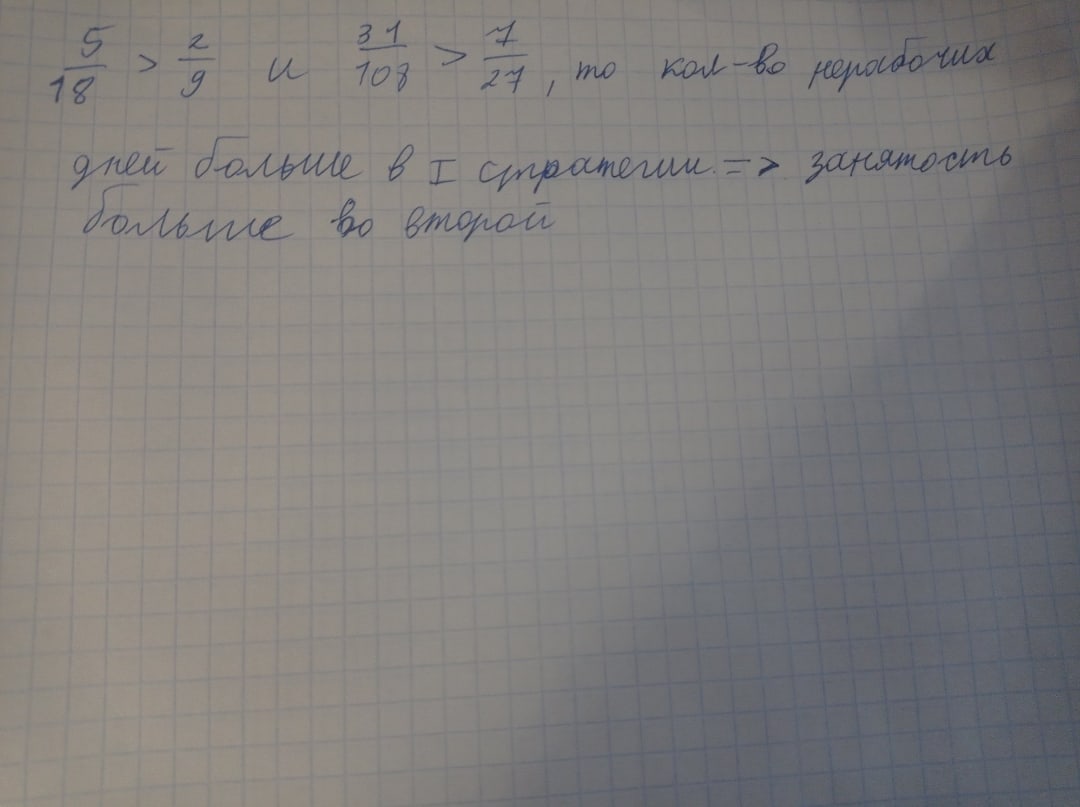 5/18 > 2/9 и 31/108 > 7/27, то кол-во нерабочих
дней больше в I стратегии => занятость
больше во второй